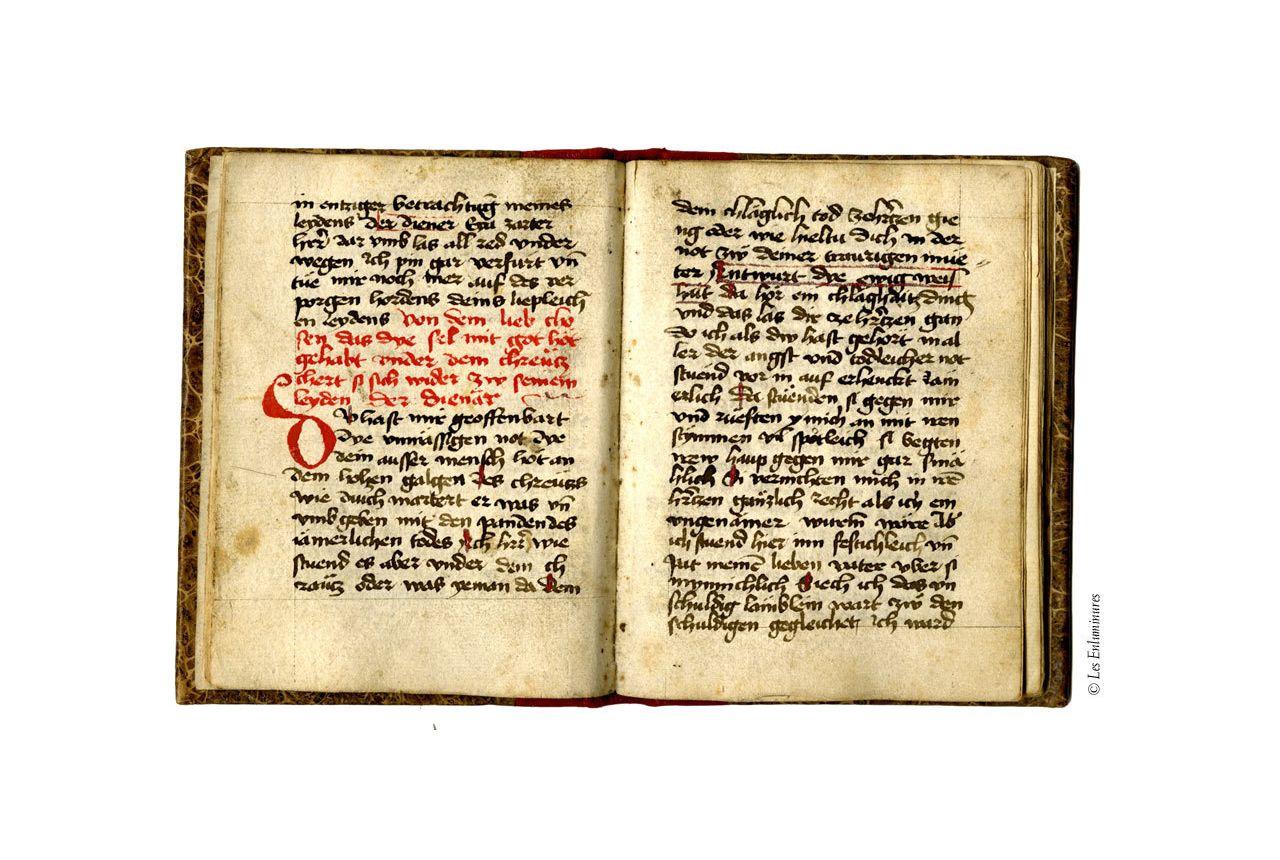 in emtziger betrachtūg meines
leydens der diener Eya zarter
herr dar vmb las all red vnder
wegen ich pin gar verfurt vn̄
tüe mir noch mer auf des ver
porgen hordens deins liepleich
en leydens Von dem lieb cho
sen das dye sel mit got hat
gehabt vnder dem chreücz
chert si sich wider zw seinem
leyden der dienär
Du hast mir geoffenbart
dye vnmässigen not dye
dein ausser mensch hät an
dem hohen galgen des chreücz
wie duich martert er was vn̄
vmb geben mit den panden des
iämerlichen todes Ach herr wie
stuend es aber vnder dem ch
räucz oder was yeman da dem
dein chläglich tod ze hertzen gie
ng oder wie hieltu dich in der
not zw deiner traurigen mue
ter Antwurt dye ewig weis
hait da hör ein chläghaft ding
vnd das las dir ze hertzen gan
do ich als dw hast gehort in al
ler der angst vnd todleicher not
stuend vor in auf erhenckt iäm
erlich Da stüenden si gegen mir
vnd rüeften mich an mit iren
stymmen vn̄ spötleich si begten
irew haup gegen mir gar smä
hlich Si vernichten mich in irē
hertzen gänzlich recht als ich ein
vngenämer wurm wäre Ab
ich stuend hier inn festichleich vn̄
pat meinē lieben vater vber si
mynnichlich Siech ich das vn
schuldig lämblein wart zw den
schuldigen gegleichet ich ward
© Les Enluminures